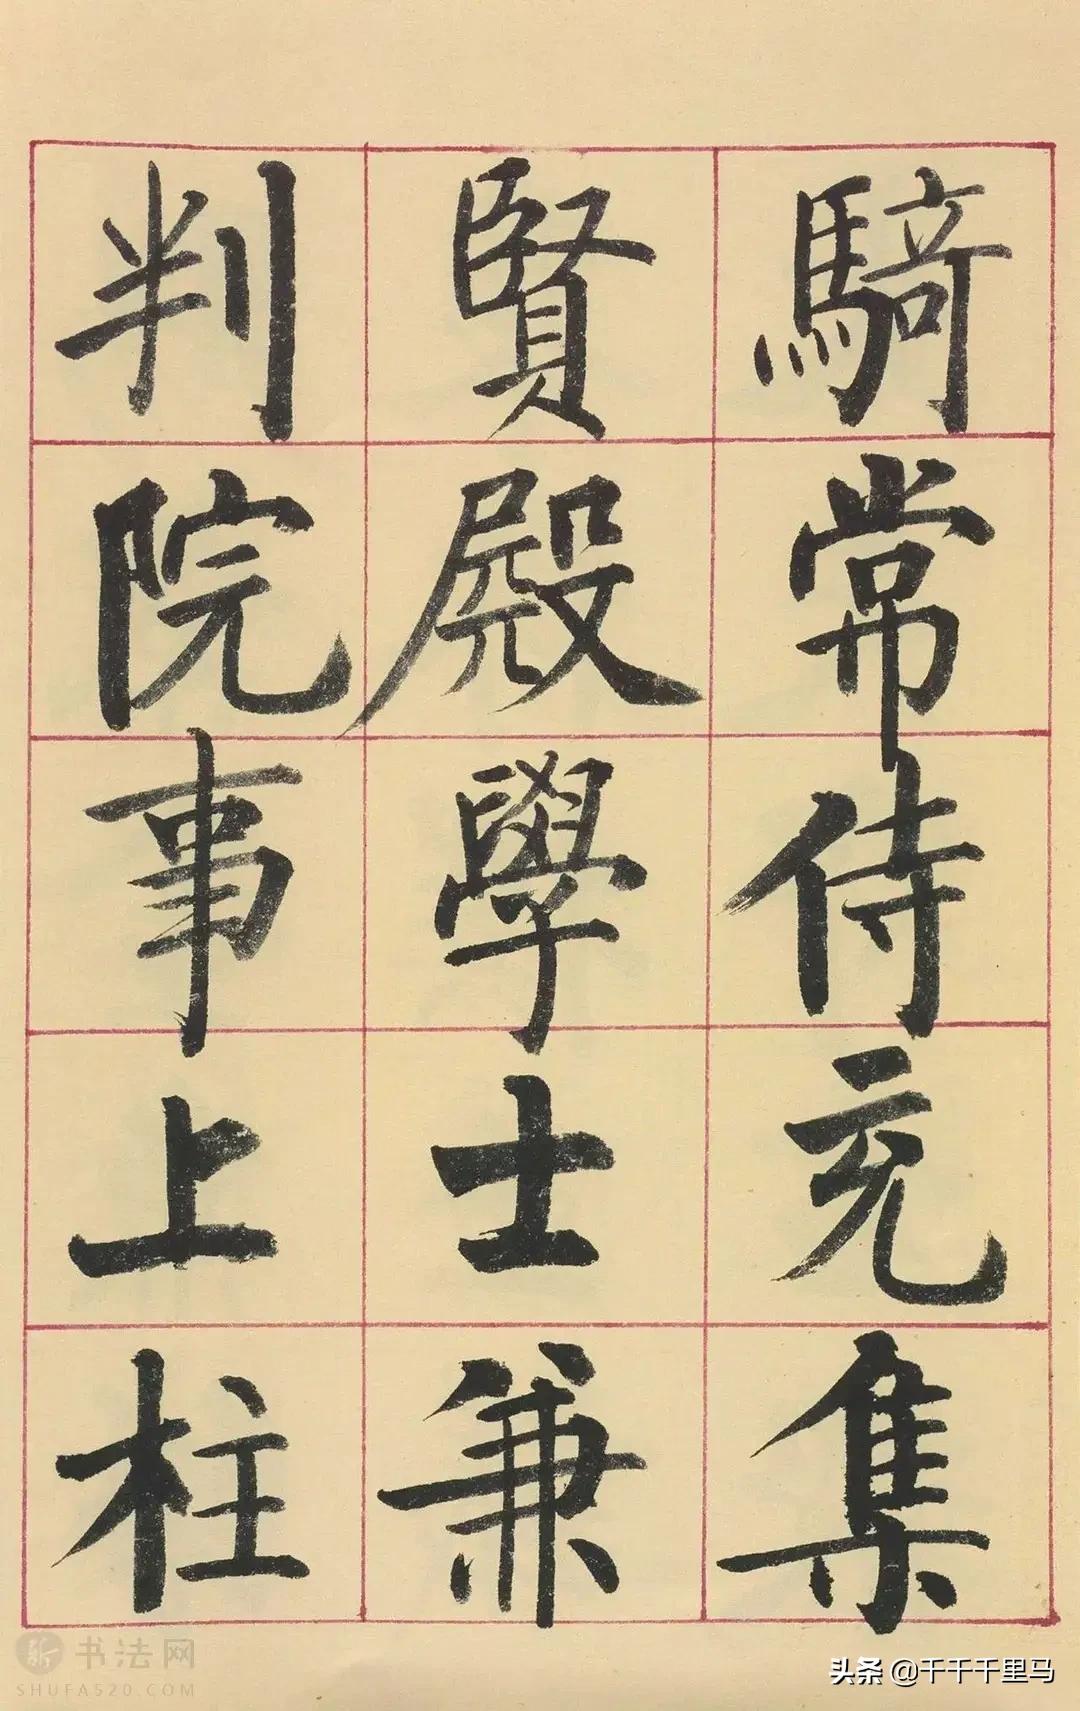 騎常侍充集
賢殿學士兼
判院事上柱
书法网
SHUFA520.COM
头条 @千千千里马